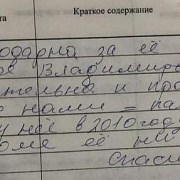 та Краткое содержание
одарна за её
Владимиро
тельна и про
нами = па
у неё в 2010 году
оме её ни
Спаси